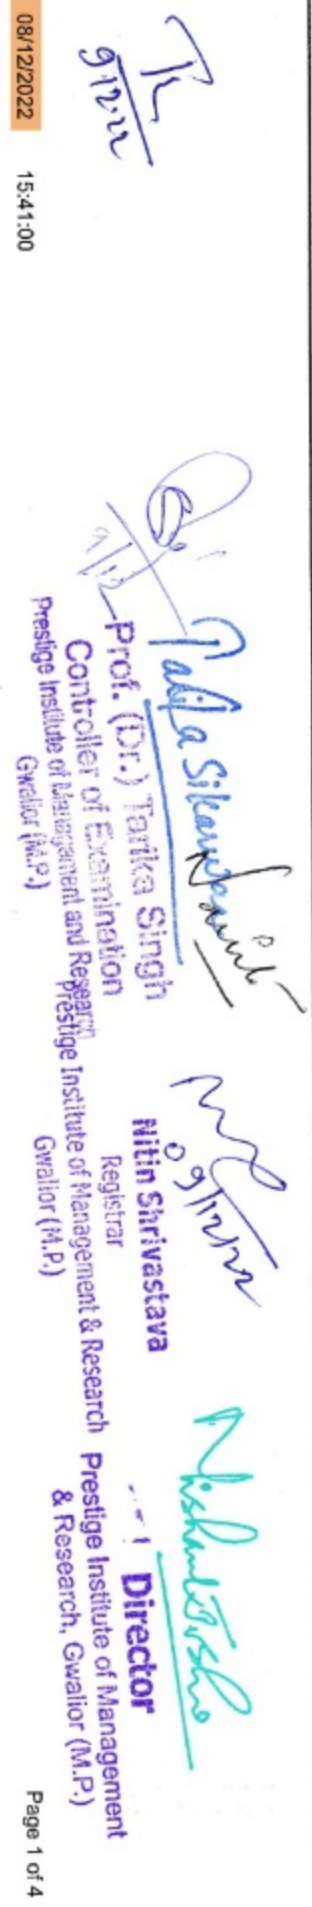 9.12.22
9/12
Tarika Sikarwar
Prof. (Dr.) Tarika Singh
Controller of Examination
Prestige Institute of Management and Research
Gwalior (M.P.)
09/12/22
Nitin Shrivastava
Registrar
Prestige Institute of Management & Research
Gwalior (M.P.)
Nishant Joshi
Director
Prestige Institute of Management
& Research, Gwalior (M.P.)
08/12/2022 15:41:00
Page 1 of 4